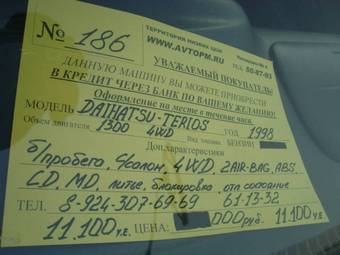 ТЕРРИТОРИЯ НИЗКИХ ЦЕН
№ 186
WWW.AVTOPM.RU ТЕЛ. 50-87-03
УВАЖАЕМЫЙ ПОКУПАТЕЛЬ!
ДАННУЮ МАШИНУ ВЫ МОЖЕТЕ ПРИОБРЕСТИ
В КРЕДИТ ЧЕРЕЗ БАНК ПО ВАШЕМУ ЖЕЛАНИЮ!
Оформление на месте в течение часа.
МОДЕЛЬ DAIHATSU-TERIOS
Объем двигателя 1300 4WD ГОД 1998
Вид топлива БЕНЗИН
Доп.характеристики
б/пробега, 4салон, 4WD, 2AIR-BAG, ABS,
CD, MD, литье, блокировка, отл. состояние
ТЕЛ. 8-924-307-69-69 61-13-32
11.100 у.е. ЦЕНА: 000 руб. 11.100 у.е.